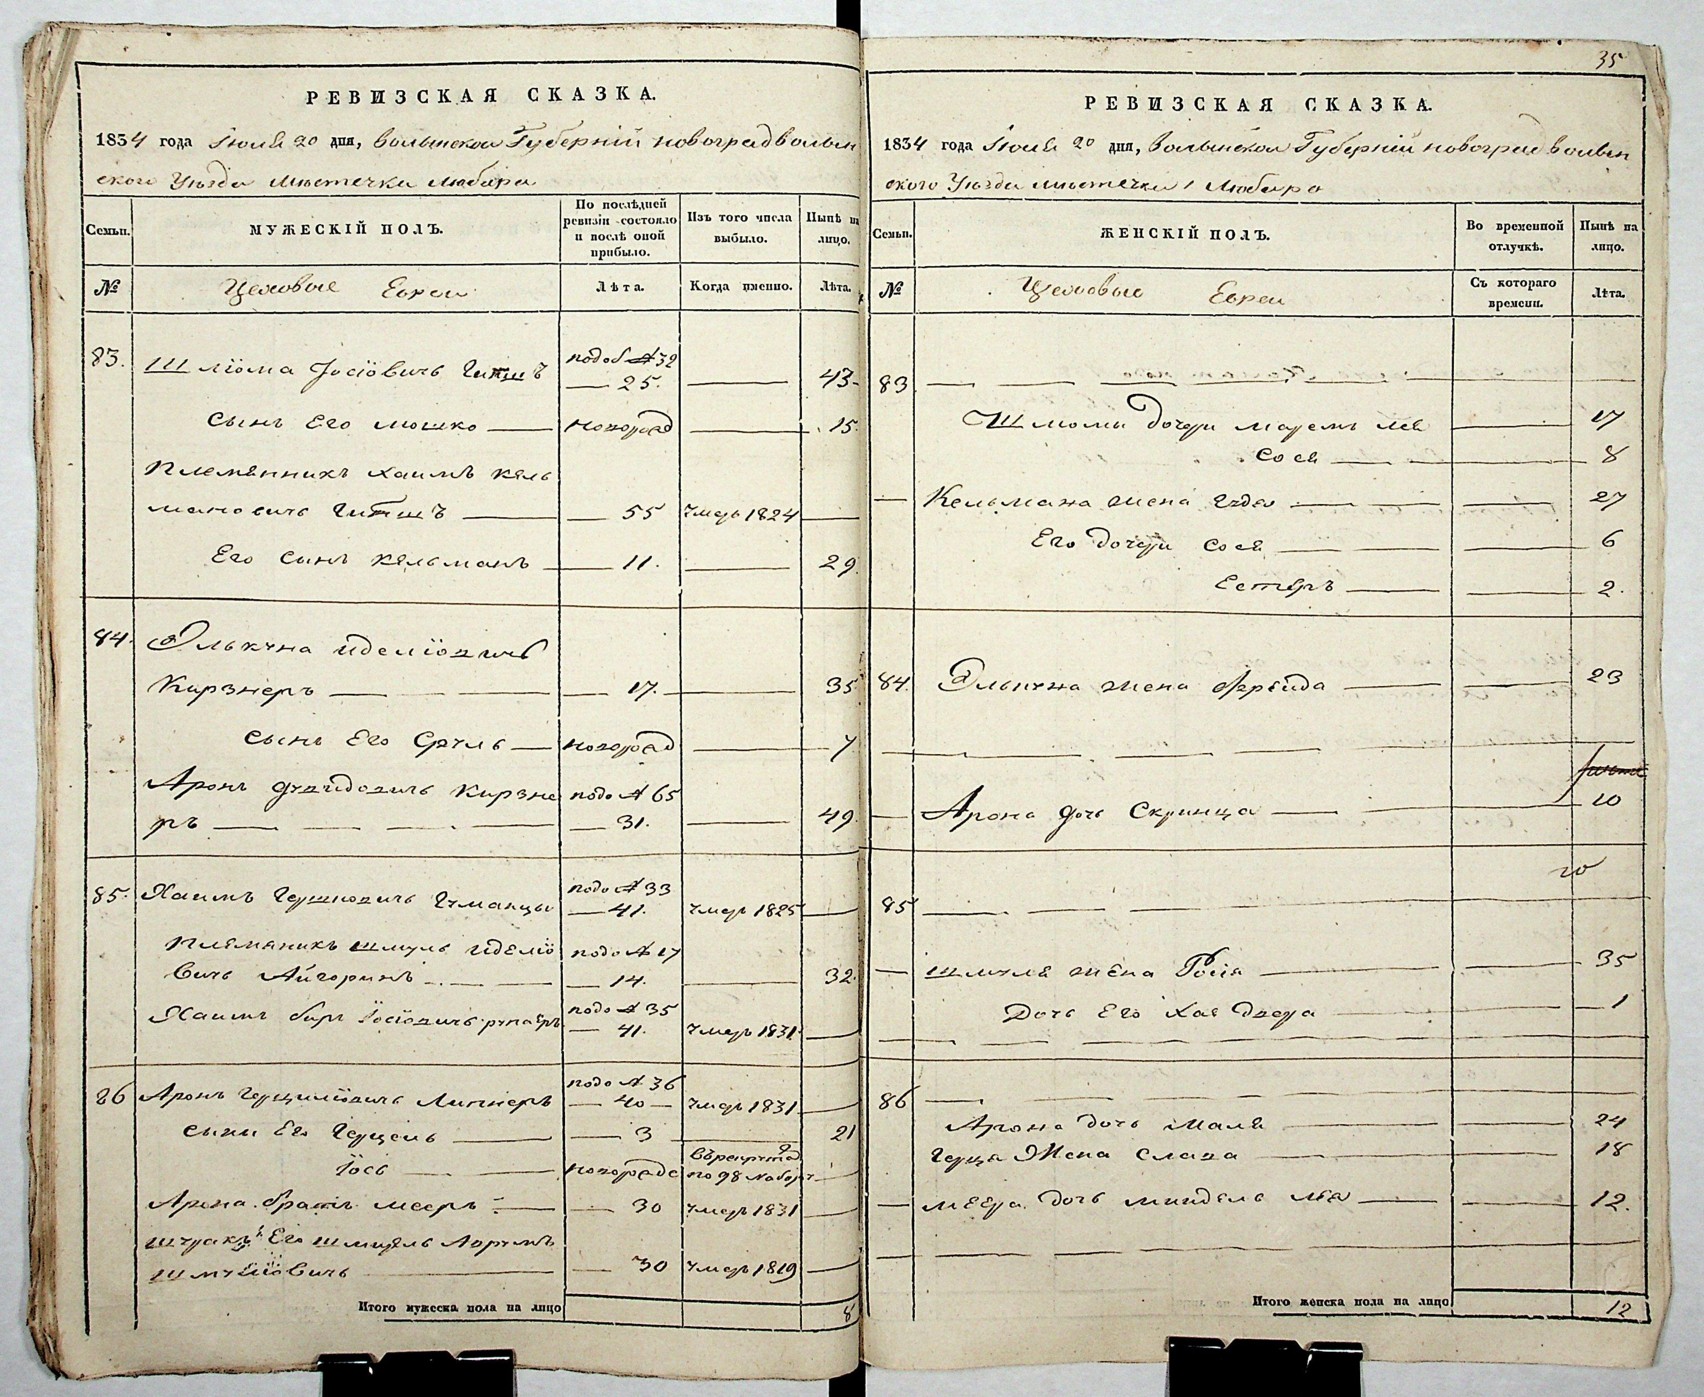 РЕВИЗСКАЯ СКАЗКА.
1834 года Іюля 20 дня, Волынской Губерніи новоградволын
ского Уѣзда мѣстечка Любара
Семьи.
МУЖЕСКІЙ ПОЛЪ.
По послѣдней ревизіи состояло и послѣ оной прибыло.
Изъ того числа выбыло.
Нынѣ на лицо.
№
Цеховые Евреи
Лѣта.
Когда именно.
Лѣта.
83.
Шліома Іосіовичъ
подоб № 32
25.
43
сынъ Его мошко
новород
15.
Племянникъ Хаимъ Кель
мановичъ
55
умеръ 1824
Его сынъ Кельманъ
11.
29
84.
Элькуна Иделіовичъ
Кирзнеръ
17.
35
сынъ Его Сруль
новород
7
Аронъ Дувидовичъ Кирзне
ръ
подо № 65
31.
49
85.
Хаимъ Гершковичъ Гуманцы
подо № 33
41.
умеръ 1825
Племяникъ Шмуль Иделіо
вичъ
подо № 17
14.
32.
Хаимъ беръ Іосіовичъ
подо № 35
41.
умеръ 1831
86
Аронъ Гершиліовичъ Литнеръ
подо № 36
40
умеръ 1831
сыны Его Герцель
3
21
Іось
новорожд
въ рекрута
по 98 набору
Арона братъ мееръ
30
умеръ 1831
Шуракъ Его
Шмуйловичъ
30
умеръ 1819
Итого мужеска пола на лицо
8
35
РЕВИЗСКАЯ СКАЗКА.
1834 года Іюля 20 дня, Волынской Губерніи новоград волын
ского Уѣзда мѣстечка Любара
Семьи.
ЖЕНСКІЙ ПОЛЪ.
Во временной отлучкѣ.
Нынѣ на лицо.
№
Цеховые Евреи
Съ котораго времени.
Лѣта.
83
Шлюмы дочери Лея
17
Сося
8
Кельмана жена Гудя
27
Его дочери Сося
6
Естеръ
2.
84.
Элькуна жена Фрейда
23
Арона дочь Скринца
10
85
Шмуля жена Рося
35
Дочь Его Хая Двера
1
86
Арона дочь Маля
24
Герца Жена Слава
18
Меера дочь миндель лея
12.
Итого женска пола на лицо
12